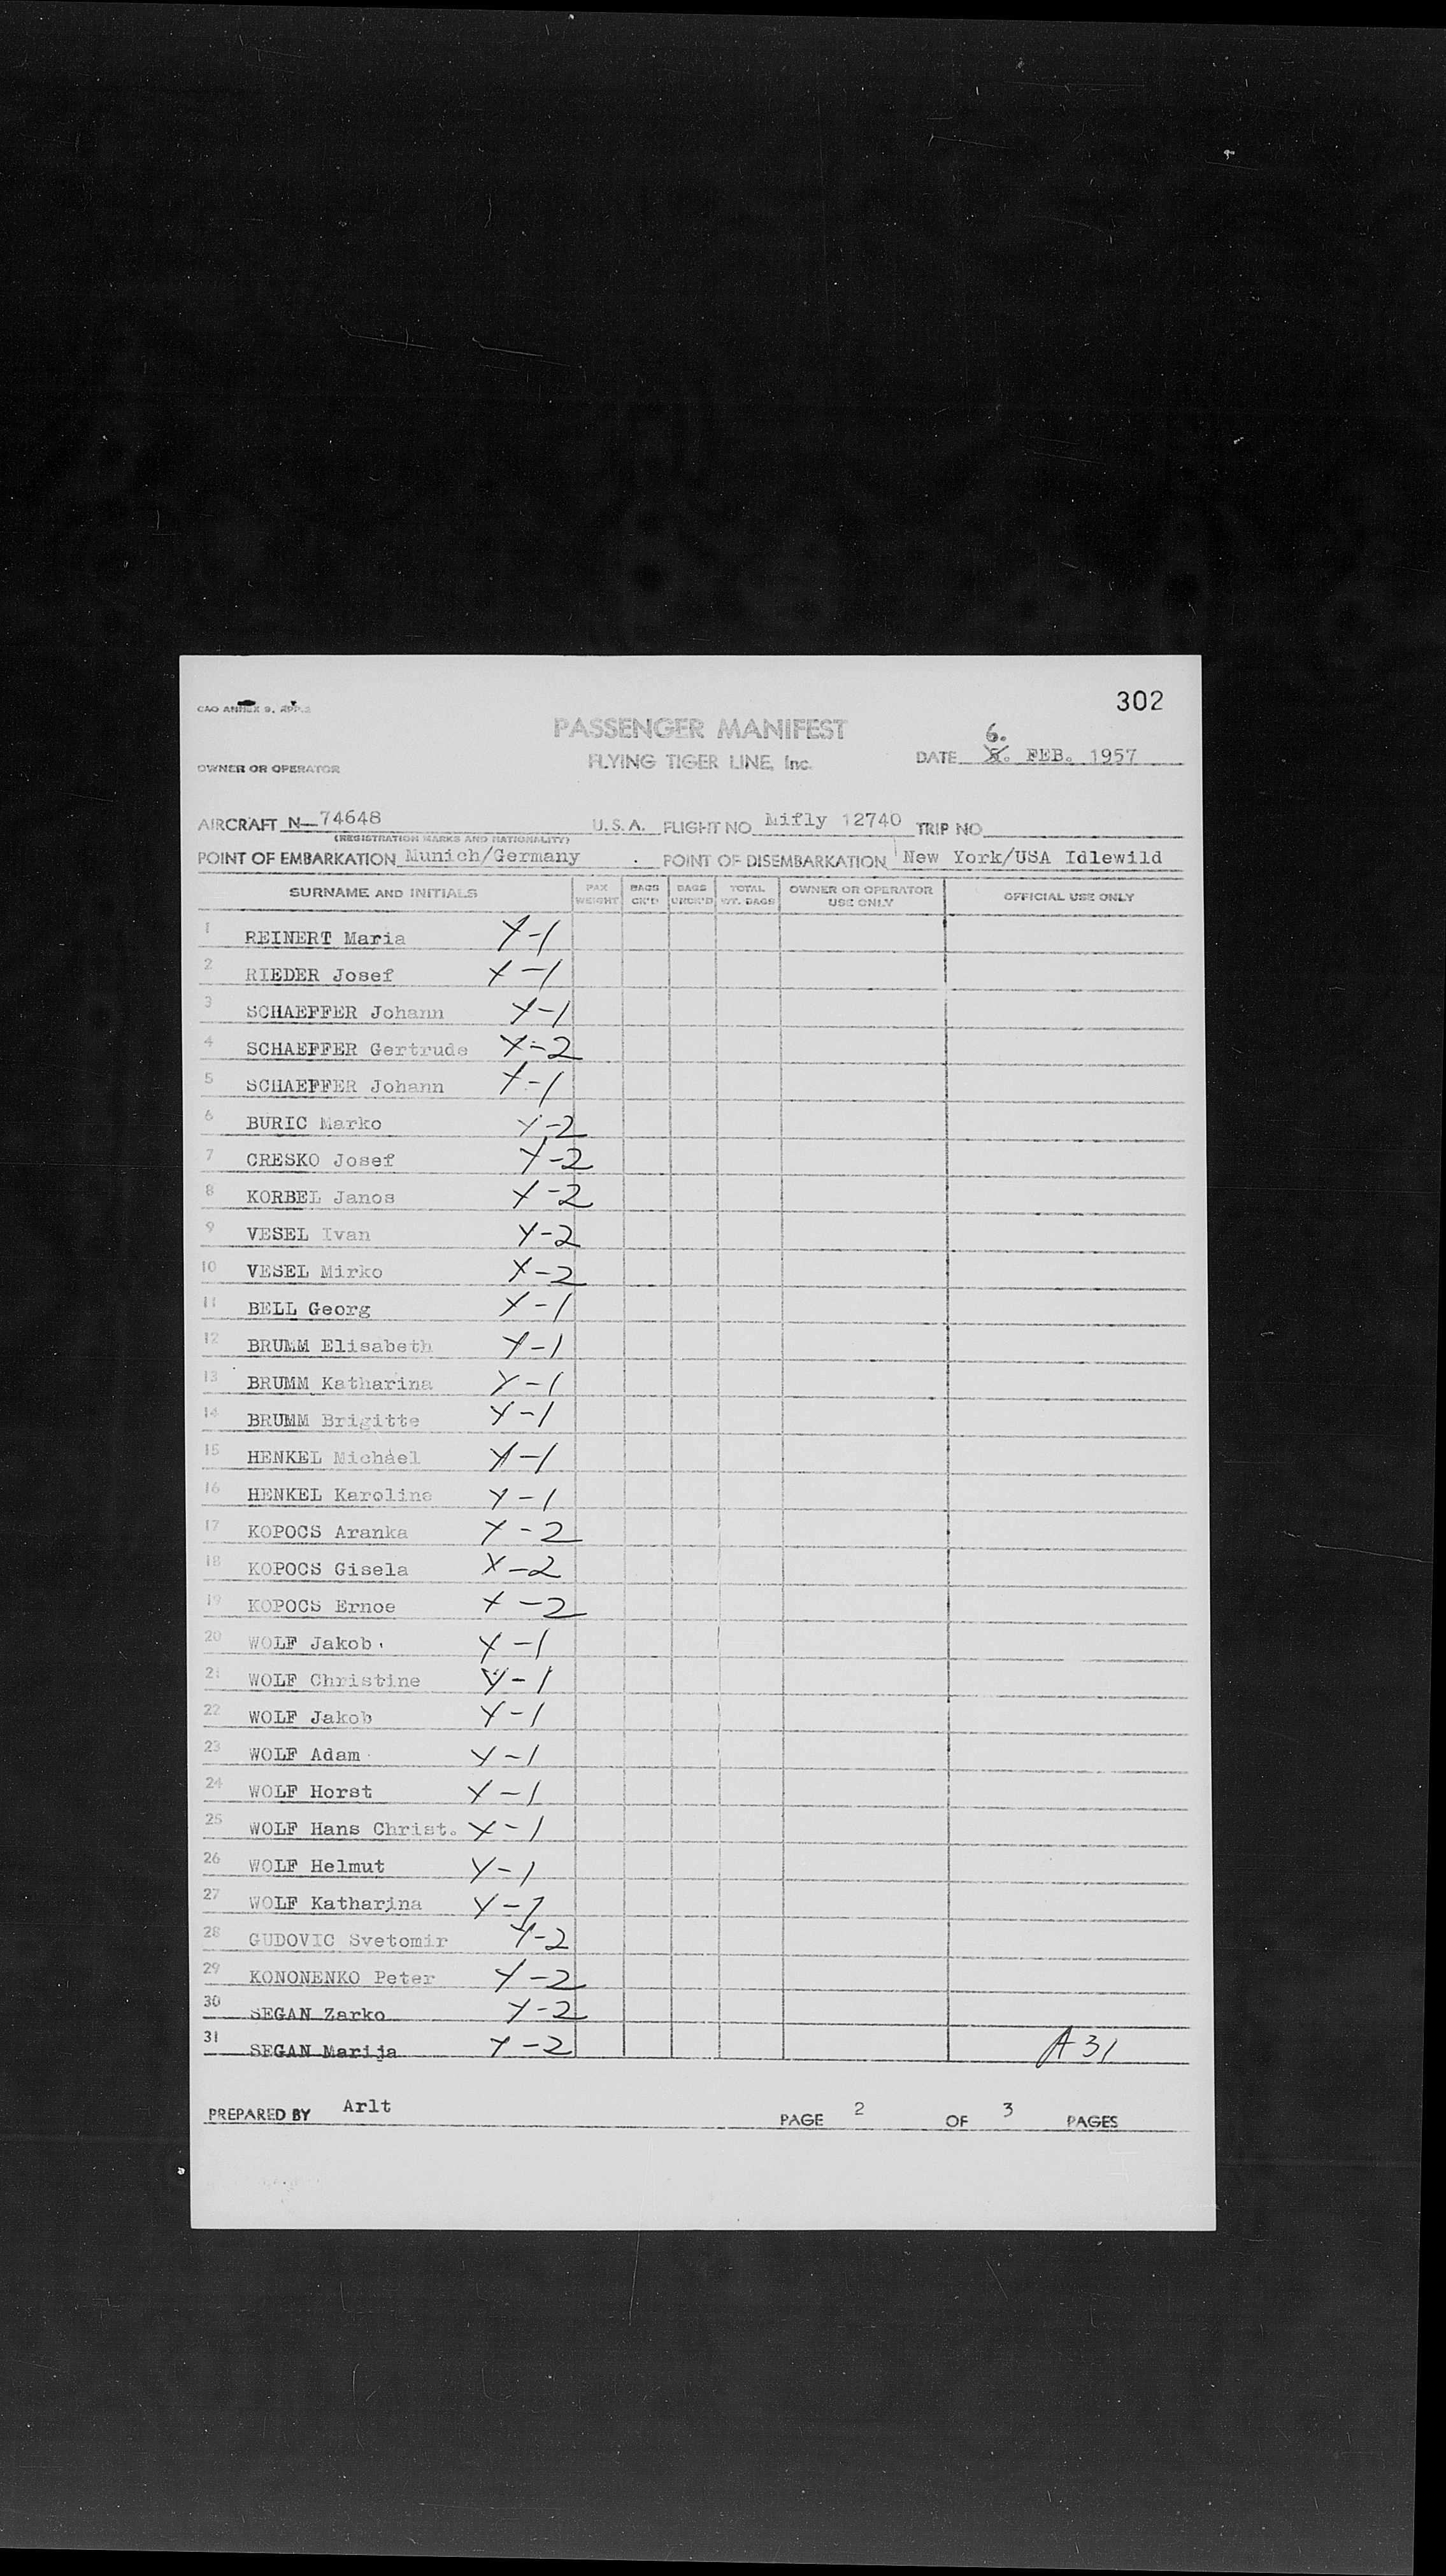 302
CAO ANNEX 9, APP.2
PASSENGER MANIFEST
6.
FLYING TIGER LINE, Inc.
DATE 5. FEB. 1957
OWNER OR OPERATOR
AIRCRAFT N-74648 U.S.A. FLIGHT NO Mifly 12740 TRIP NO
(REGISTRATION MARKS AND NATIONALITY)
POINT OF EMBARKATION Munich/Germany . POINT OF DISEMBARKATION New York/USA Idlewild
SURNAME AND INITIALS PAX WEIGHT BAGS CK'D BAGS UNCK'D TOTAL WT. BAGS OWNER OR OPERATOR USE ONLY OFFICIAL USE ONLY
1 REINERT Maria Y-1
2 RIEDER Josef Y-1
3 SCHAEFFER Johann Y-1
4 SCHAEFFER Gertrude Y-2
5 SCHAEFFER Johann Y-1
6 BURIC Marko Y-2
7 CRESKO Josef Y-2
8 KORBEL Janos Y-2
9 VESEL Ivan Y-2
10 VESEL Mirko Y-2
11 BELL Georg Y-1
12 BRUMM Elisabeth Y-1
13 BRUMM Katharina Y-1
14 BRUMM Brigitte Y-1
15 HENKEL Michael Y-1
16 HENKEL Karoline Y-1
17 KOPOCS Aranka Y-2
18 KOPOCS Gisela Y-2
19 KOPOCS Ernoe Y-2
20 WOLF Jakob Y-1
21 WOLF Christine Y-1
22 WOLF Jakob Y-1
23 WOLF Adam Y-1
24 WOLF Horst Y-1
25 WOLF Hans Christ. Y-1
26 WOLF Helmut Y-1
27 WOLF Katharina Y-1
28 GUDOVIC Svetomir Y-2
29 KONONENKO Peter Y-2
30 SEGAN Zarko Y-2
31 SEGAN Marija Y-2 A 31
PREPARED BY Arlt PAGE 2 OF 3 PAGES